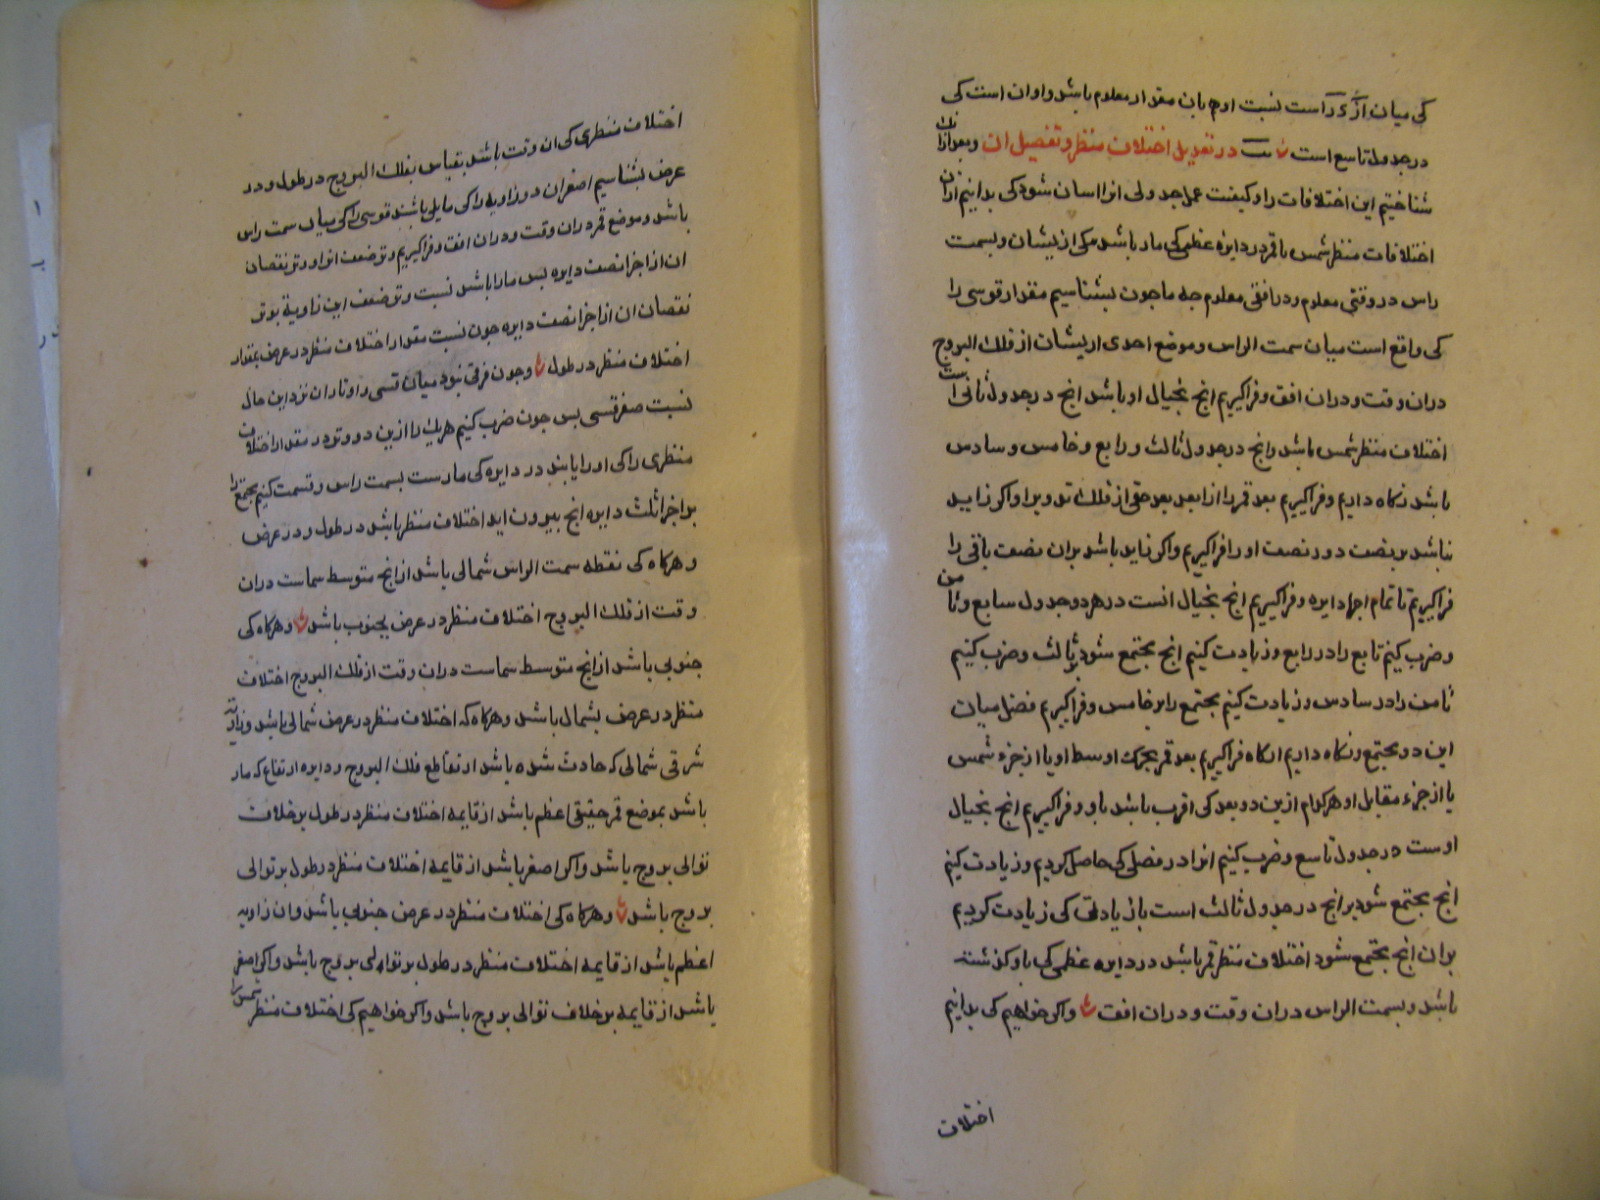 کی میان ار ی د است نسبت او هم بان مقدار معلوم باشد و او ان است کی
در جدول تاسع است در تعدیل اختلاف منظر و تفصیل ان و بعد ازانک
شناختیم این اختلافات را و کیفیت عمل جدولی انرا اسان شود کی بدانیم ازان
اختلافات منظر شمس یا قمر در دایره عظمی کی مار باشد بیکی از یشان و بسمت
راس در وقتی معلوم و در افقی معلوم جه ما جون بشناسیم مقدار قوسی را
کی واقع است میان سمت الراس و موضع احدی از یشان از فلک البروج
دران وقت و دران افق و فراکیریم انچ بحیال او باشد انچ در جدول ثانی است
اختلاف منظر شمس باشد و انچ در جدول ثالث و رابع و خامس و سادس
باشد نکاه داریم و فراکیریم بعد قمر را از ابعد بعد حتی از فلک تدویر او اکر زاید
نباشد بر نصف دور نصف او را فراکیریم و اکر زاید باشد بران نصف باقی را
فراکیریم تا تمام اجزا دایره و فراکیریم انچ بحیال انست در هر دو جدول سابع و ثامن
و ضرب کنیم سابع را در رابع و زیادت کنیم انچ مجتمع شود بر ثالث و ضرب کنیم
ثامن را در سادس و زیادت کنیم مجتمع را بر خامس و فراکیریم فضل میان
این دو مجتمع و نکاه داریم انکاه فراکیریم بعد قمر بحرکت اوسط او یا از جزء شمس
یا از جزء مقابل او هر کدام ازین دو بعد کی اقرب باشد باو و فراکیریم انچ بحیال
اوست در جدول تاسع و ضرب کنیم انرا در فضلی کی حاصل کردیم و زیادت کنیم
انچ مجتمع شود بر انچ در جدول ثالث است با زیادتی کی زیادت کردیم
بران انچ مجتمع شود اختلاف منظر قمر باشد در دایره عظمی کی باو کذشته
باشد و بسمت الراس دران وقت و دران افق و اکر خواهیم کی بدانیم
اختلاف
اختلاف منظری کی ان وقت باشد بقیاس بفلک البروج در طول و در
عرض بشناسیم اصغر ان دو زاویه را کی مایلی باشند قوسی را کی میان سمت راس
باشد و موضع قمر دران وقت و دران افق و فراکیریم وتر ضعف انرا و وتر نقصان
ان از اجزا نصف دایره بس مارا باشد نسبت وتر ضعف این زاویه بوتر
نقصان ان از اجزا نصف دایره جون نسبت مقدار اختلاف منظر در عرض بمقدار
اختلاف منظر در طول و جون فرقی نبود میان قسی و اوتار ان نزد این حال
نسبت صغر قسی بس جون ضرب کنیم هریک را ازین دو وتر در مقدار اختلاف
منظری را کی او را یابند در دایره کی مارست بسمت راس و قسمت کنیم مجتمع را
بر اجزا ثلث دایره انچ بیرون اید اختلاف منظر باشد در طول و در عرض
و هرکاه کی نقطه سمت الراس شمالی باشد از انچ متوسط سماست دران
وقت از فلک البروج اختلاف منظر در عرض بجنوب باشد و هرکاه کی
جنوبی باشد از انچ متوسط سماست دران وقت از فلک البروج اختلاف
منظر در عرض بشمال باشد و هرکاه که اختلاف منظر در عرض شمالی باشد و زاویه
شرقی شمالی که حادث شده باشد از تقاطع فلک البروج و دایره ارتفاع که مار
باشد بموضع قمر حقیقی اعظم باشد از قایمه اختلاف منظر در طول بر خلاف
توالی بروج باشد و اکر اصغر باشد از قایمه اختلاف منظر در طول بر توالی
بروج باشد و هرکاه کی اختلاف منظر در عرض جنوبی باشد و ان زاویه
اعظم باشد از قایمه اختلاف منظر در طول بر توالی بروج باشد و اکر اصغر
باشد از قایمه بر خلاف توالی بروج باشد و اکر خواهیم کی اختلاف منظر شمس را